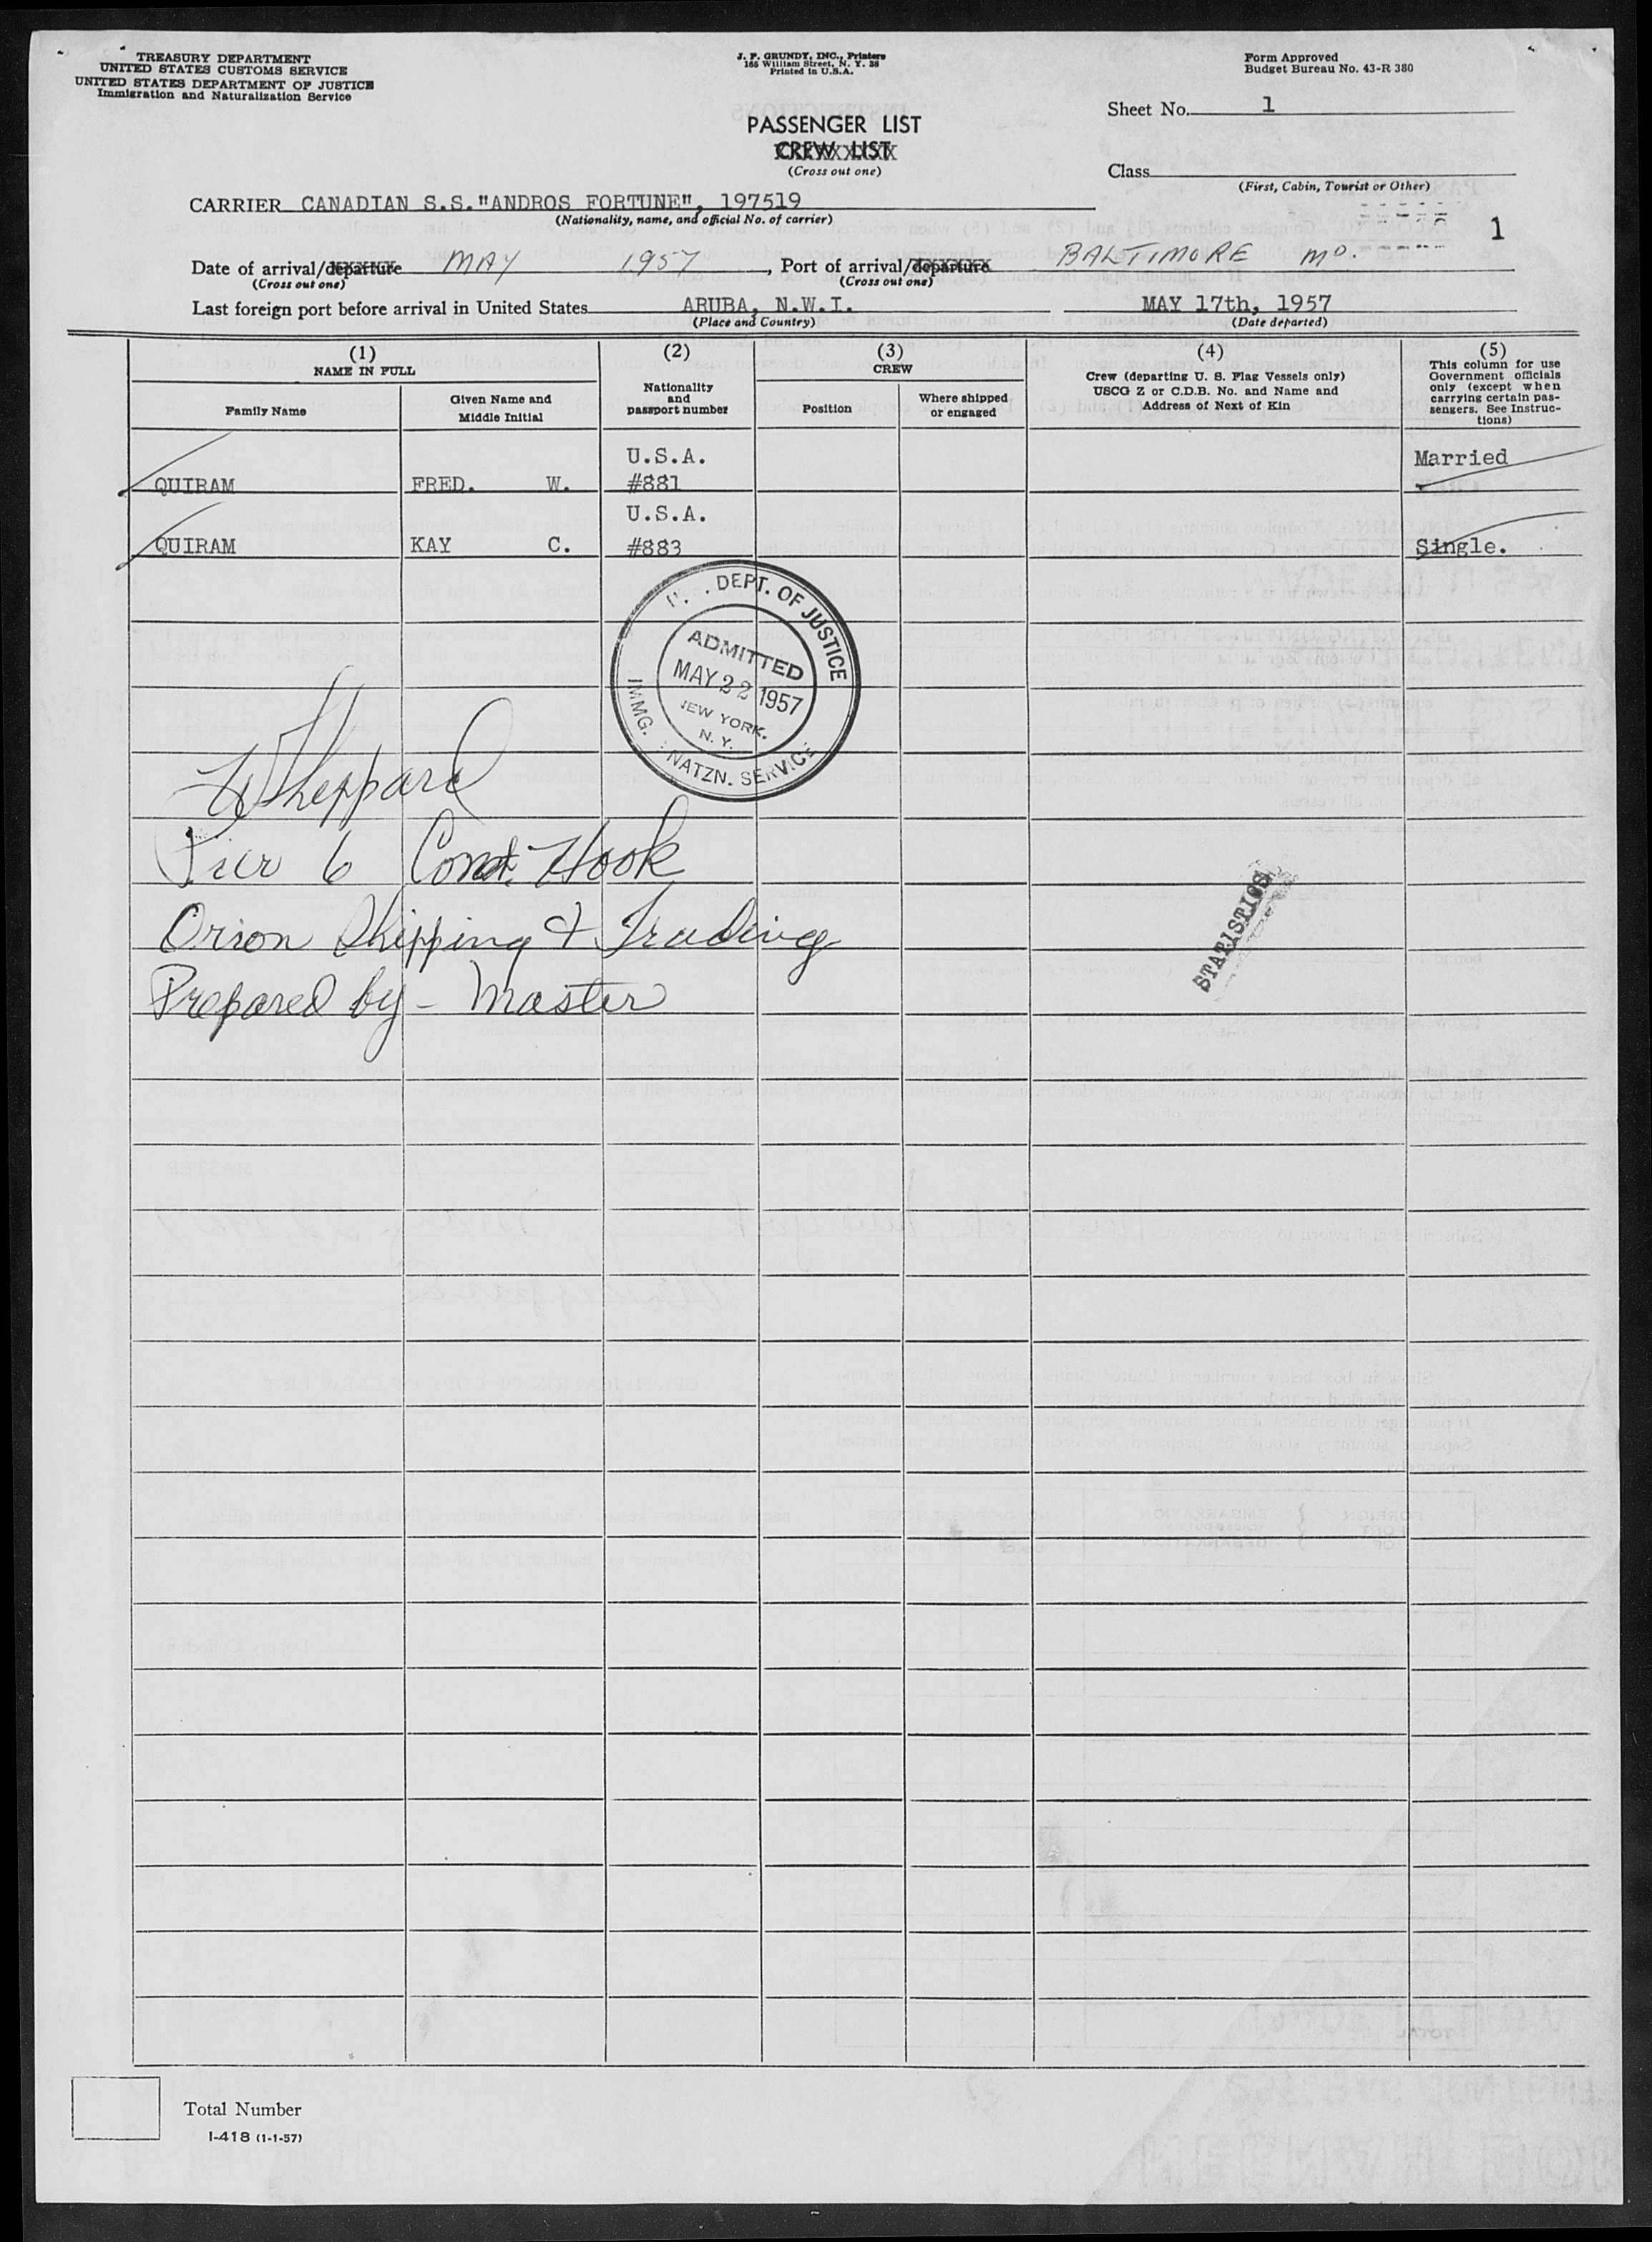 TREASURY DEPARTMENT
UNITED STATES CUSTOMS SERVICE
UNITED STATES DEPARTMENT OF JUSTICE
Immigration and Naturalization Service
J. F. GRUNDY, INC., Printers
165 William Street, N. Y. 38
Printed in U.S.A.
Form Approved
Budget Bureau No. 43-R 380
Sheet No. 1
PASSENGER LIST
CREW LIST
(Cross out one)
Class
(First, Cabin, Tourist or Other)
CARRIER CANADIAN S.S."ANDROS FORTUNE", 197519
(Nationality, name, and official No. of carrier)
1
Date of arrival/departure MAY 1957, Port of arrival/departure BALTIMORE MD.
(Cross out one) (Cross out one)
Last foreign port before arrival in United States ARUBA, N.W.I. MAY 17th, 1957
(Place and Country) (Date departed)
(1)
NAME IN FULL
Family Name
Given Name and
Middle Initial
(2)
Nationality
and
passport number
(3)
CREW
Position
Where shipped
or engaged
(4)
Crew (departing U. S. Flag Vessels only)
USCG Z or C.D.B. No. and Name and
Address of Next of Kin
(5)
This column for use
Government officials
only (except when
carrying certain pas-
sengers. See Instruc-
tions)
U.S.A. Married
QUIRAM FRED. W. #881
U.S.A.
QUIRAM KAY C. #883 Single.
DEPT. OF JUSTICE
ADMITTED
MAY 22 1957
NEW YORK.
N. Y.
IMMG. NATZN. SERVICE
W Sheppard
Pier 6 Const. Hook
STATISTICS
Orion Shipping & Trading
Prepared by - Master
Total Number
I-418 (1-1-57)